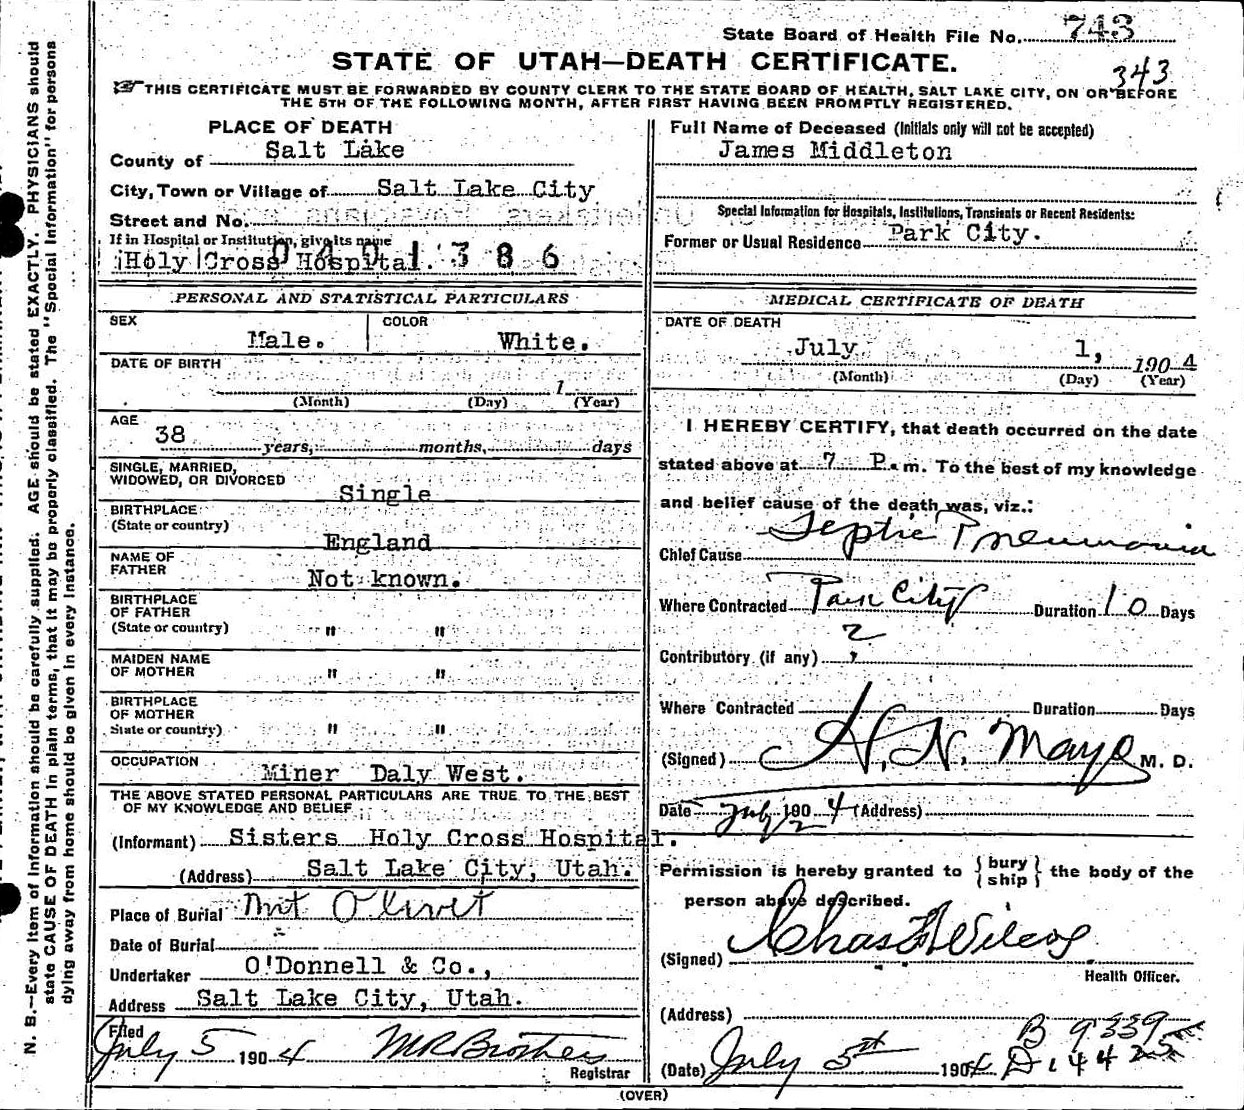 State Board of Health File No. 743
STATE OF UTAH—DEATH CERTIFICATE.
343
THIS CERTIFICATE MUST BE FORWARDED BY COUNTY CLERK TO THE STATE BOARD OF HEALTH, SALT LAKE CITY, ON OR BEFORE
THE 5TH OF THE FOLLOWING MONTH, AFTER FIRST HAVING BEEN PROMPTLY REGISTERED.
PLACE OF DEATH
County of Salt Lake
City, Town or Village of Salt Lake City
Street and No.
If in Hospital or Institution, give its name
Holy Cross Hospital.
0401386
Full Name of Deceased (Initials only will not be accepted)
James Middleton
Special Information for Hospitals, Institutions, Transients or Recent Residents:
Former or Usual Residence Park City.
PERSONAL AND STATISTICAL PARTICULARS
SEX Male. COLOR White.
DATE OF BIRTH
1
(Month) (Day) (Year)
AGE
38 years, months, days
SINGLE, MARRIED,
WIDOWED, OR DIVORCED
Single
BIRTHPLACE
(State or country)
England
NAME OF
FATHER
Not known.
BIRTHPLACE
OF FATHER
(State or country) " "
MAIDEN NAME
OF MOTHER " "
BIRTHPLACE
OF MOTHER
State or country) " "
OCCUPATION
Miner Daly West.
THE ABOVE STATED PERSONAL PARTICULARS ARE TRUE TO THE BEST
OF MY KNOWLEDGE AND BELIEF
(Informant) Sisters Holy Cross Hospital.
(Address) Salt Lake City, Utah.
Place of Burial Mt Olivet
Date of Burial
Undertaker O'Donnell & Co.,
Address Salt Lake City, Utah.
Filed
July 5 1904
Registrar
MEDICAL CERTIFICATE OF DEATH
DATE OF DEATH
July 1, 1904
(Month) (Day) (Year)
I HEREBY CERTIFY, that death occurred on the date
stated above at 7 P.m. To the best of my knowledge
and belief cause of the death was, viz.:
Chief Cause Septic Pneumonia
Where Contracted Park City Duration 10 Days
Contributory (if any) ?
Where Contracted Duration Days
(Signed) H. N. Mayo M. D.
Date July 2 1904 (Address)
Permission is hereby granted to { bury
ship } the body of the
person above described.
(Signed) Chas F Wilcox
Health Officer.
(Address)
B 9339
(Date) July 5th 1904 D. 4425
(OVER)
N. B.—Every item of information should be carefully supplied. AGE should be stated EXACTLY. PHYSICIANS should
state CAUSE OF DEATH in plain terms, that it may be properly classified. The "Special Information" for persons
dying away from home should be given in every instance.